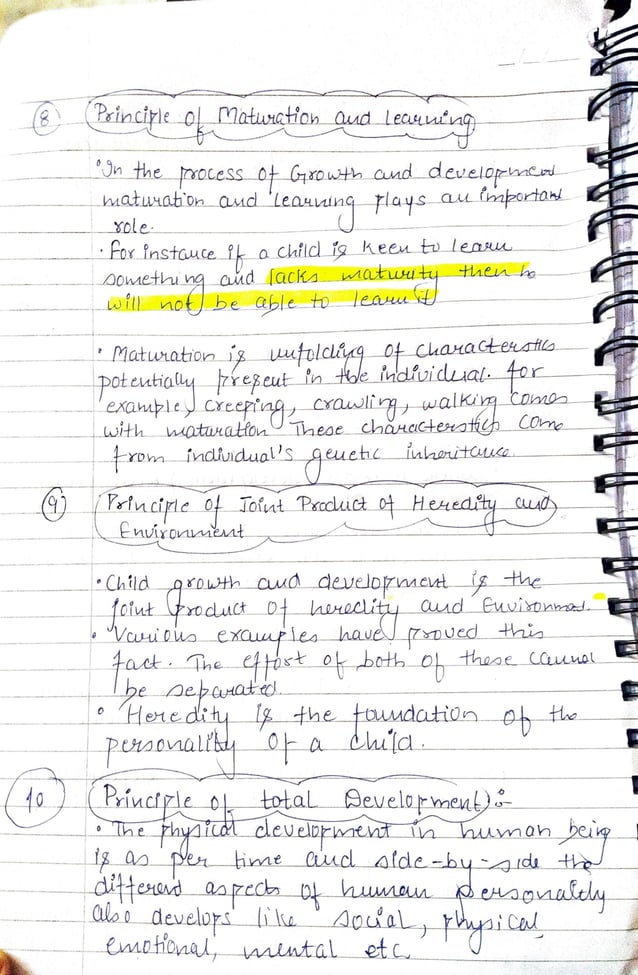 ⑧ Principle of Maturation and learning
• In the process of Growth and development
maturation and learning plays an important
role.
• For instance if a child is keen to learn
something and lacks maturity then he
will not be able to learn it
• Maturation is unfolding of characteristics
potentially present in the individual. for
example, creeping, crawling, walking comes
with maturation These characteristics come
from individual's genetic inheritance.
⑨ Principle of Joint Product of Heredity and
Environment
• Child growth and development is the
joint product of heredity and Environment.
• Various examples have proved this
fact. The effort of both of these cannot
be separated.
• Heredity is the foundation of the
personality of a child.
⑩ Principle of total Development :-
• The physical development in human being
is as per time and side-by-side the
different aspects of human personality
also develops like social, physical,
emotional, mental etc